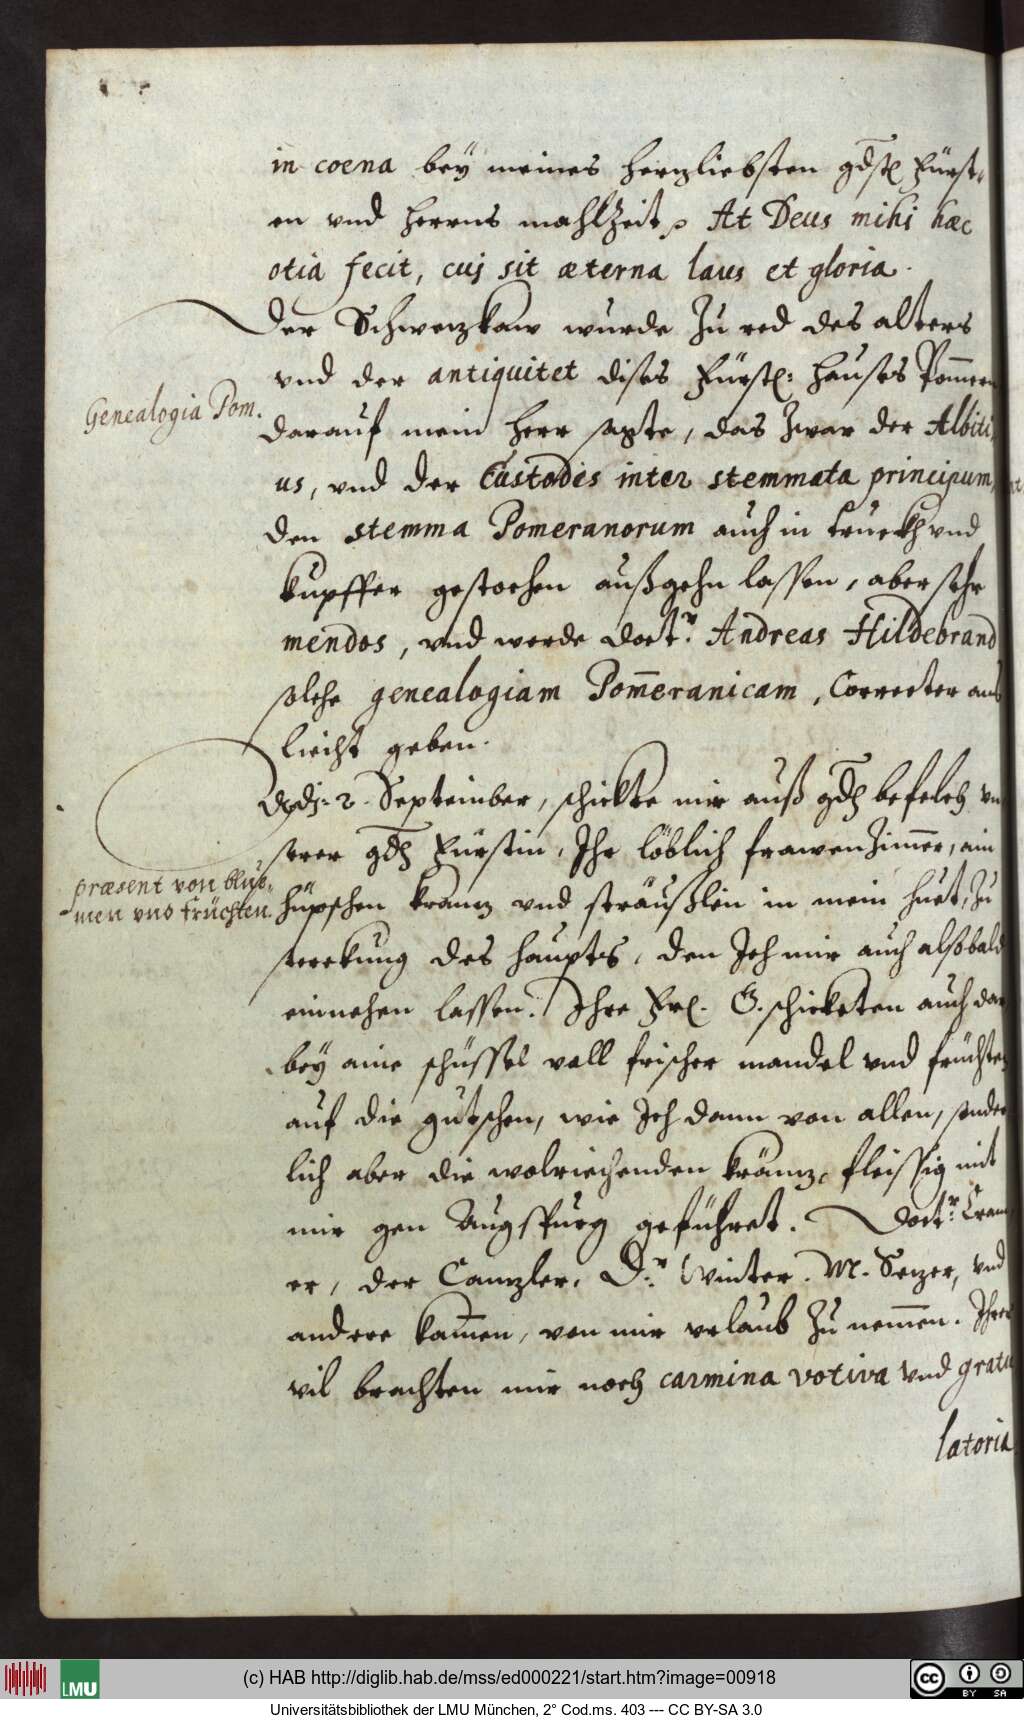 in coena beÿ meines hertzliebsten gdst Fürst-
en vnd Herrns mahlZeit. At Deus mihi hæc
otia fecit, cuj sit æterna laus et gloria.
Der Schwenzkaw wurde Zu red des alters
vnd der antiquitet dises Fürstl: hauses Pom̄ern
Genealogia Pom.
darauf mein Herr sagte, das Zwar der Albiti-
us, vnd der Custodis inter stemmata principum,
den stemma Pomeranorum auch in truckh vnd
kupffer gestochen außgehn lassen, aber sehr
mendos, vnd werde doctr. Andreas Hildebrand
solche genealogiam Pom̄eranicam, Correcter ans
liecht geben.
Adj: 2. September, schickte mir auß gdh befelch vn
serer gdh Fürstin, Ihr löblich frawenZim̄er, ain
præsent von bluo-
men vnd früchten.
hüpschen krantz vnd sträußlin in mein huet, Zu
sterckung des haupts, den Ich mir auch alßbald
einnehen lassen. Ihre Frl. G. schickten auch dar
beÿ aine schüssel voll frischer mandel vnd früchten
auf die gutschen, wie Ich dann von allen, sonder
lich aber die wolriechenden kräntz, fleissig mit
mir gen Augspurg geführet. Doctr: Cram
er, der Cantzler, Dr: Winter. M. Setzer, vnd
andere kamen, von mir vrlaub Zu nem̄en. Ihrer
vil brachten mir noch carmina votiva vnd gratu
latoria
(c) HAB http://diglib.hab.de/mss/ed000221/start.htm?image=00918
LMU
cc BY SA
Universitätsbibliothek der LMU München, 2° Cod.ms. 403 --- CC BY-SA 3.0